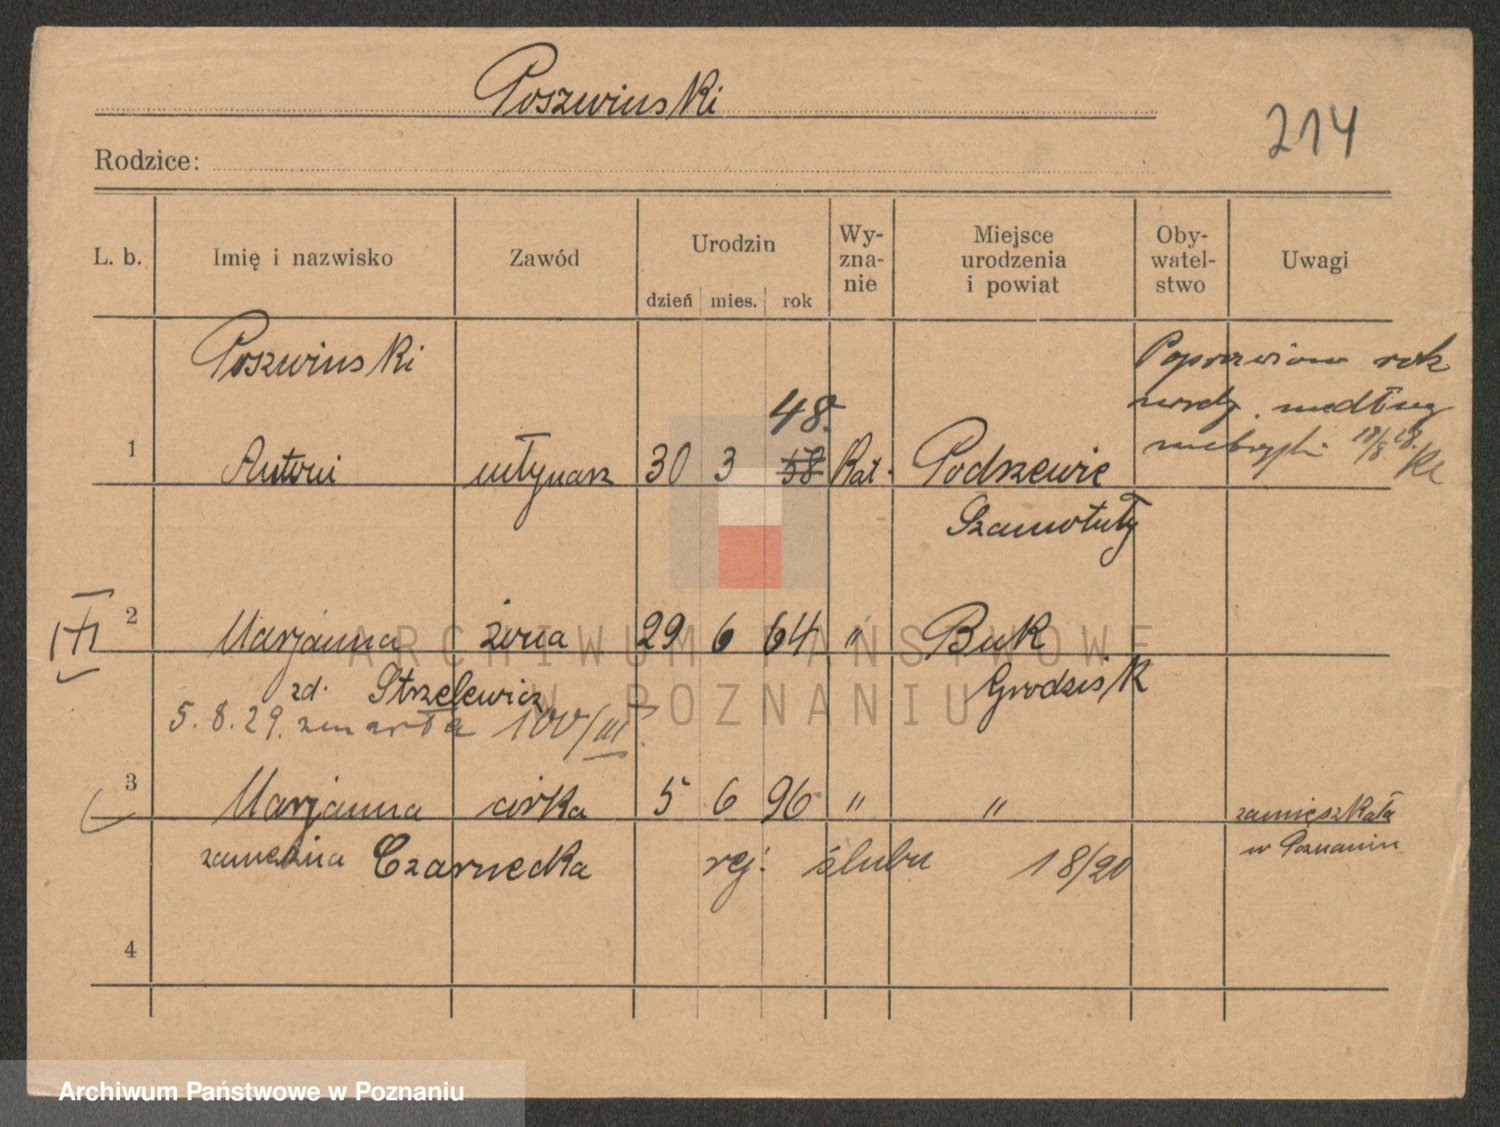 Poszwinski
214
Rodzice:
L. b. Imię i nazwisko Zawód Urodzin dzień mies. rok Wy-zna-nie Miejsce urodzenia i powiat Oby-watel-stwo Uwagi
Poszwinski
Poprawiono rok
48.
urodz. według
1 Antoni młynarz 30 3 58 Kat. Podrzewie
18/8 28.
Szamotuły
2 Marjanna żona 29 6 64 " Buk
zd. Strzelewicz Grodzisk
5.8.29. zmarła 100/III
3 Marjanna córka 5 6 96 " " zamieszkała
w Poznaniu
zamężna Czarnecka rej. ślubu 18/20
4
ARCHIWUM PAŃSTWOWE
W POZNANIU
Archiwum Państwowe w Poznaniu